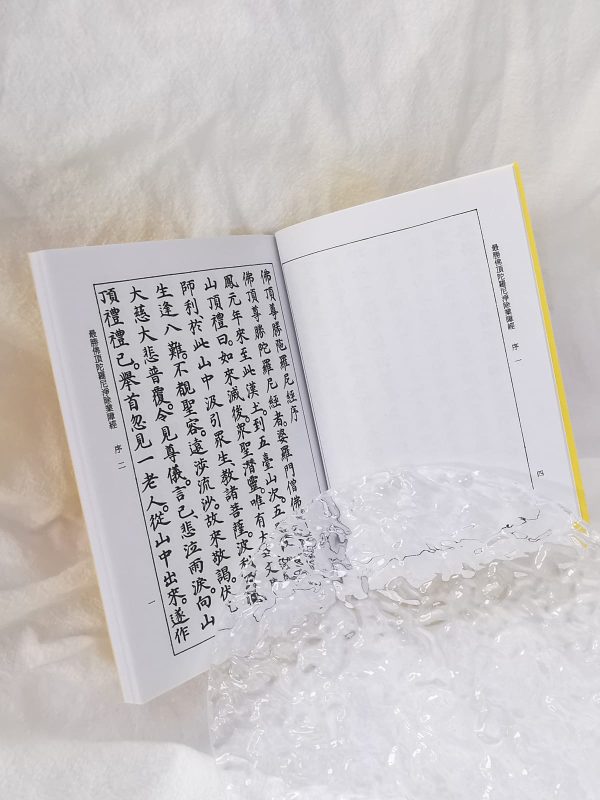 最勝佛頂陀羅尼淨除業障經 序 一
四
佛頂尊勝陀羅尼經序
佛頂尊勝陀羅尼經者。婆羅門僧佛
鳳元年來至此漢土。到五臺山次。五
山頂禮曰。如來滅後。眾聖潛靈。唯有大 文
師利於此山中汲引眾生。教諸菩薩。波利
生逢八難。不覩聖容。遠涉流沙。故來敬謁。伏
大慈大悲普覆。令見尊儀。言已悲泣雨淚。向山
頂禮禮已。舉首忽見一老人從山中出來。遂作
最勝佛頂陀羅尼淨除業障經 序 二
一